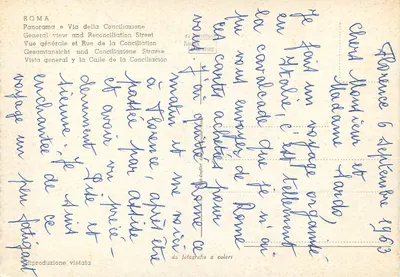 ROMA
Panorama e Via della Conciliazione
General view and Reconciliation Street
Vue générale et Rue de la Conciliation
Gesamtansicht und Conciliazione Strasse
Vista general y la Calle de la Conciliación
Florence 6 Septembre 1963
Chers Monsieur et
Madame
Je fais un voyage organisé
en Italie, c'est tellement
la cavalcade que je n'ai
pu vous envoyer de Rome
les cartes achetées pour
vous. J'ai quitté Rome ce
matin et me voici
à Florence, après être
passée par Assise
et avoir vu précé-
demment Pise et
Sienne. Je suis
enchantée de ce
voyage un peu fatigant
Riproduzione vietata
da fotografia a colori